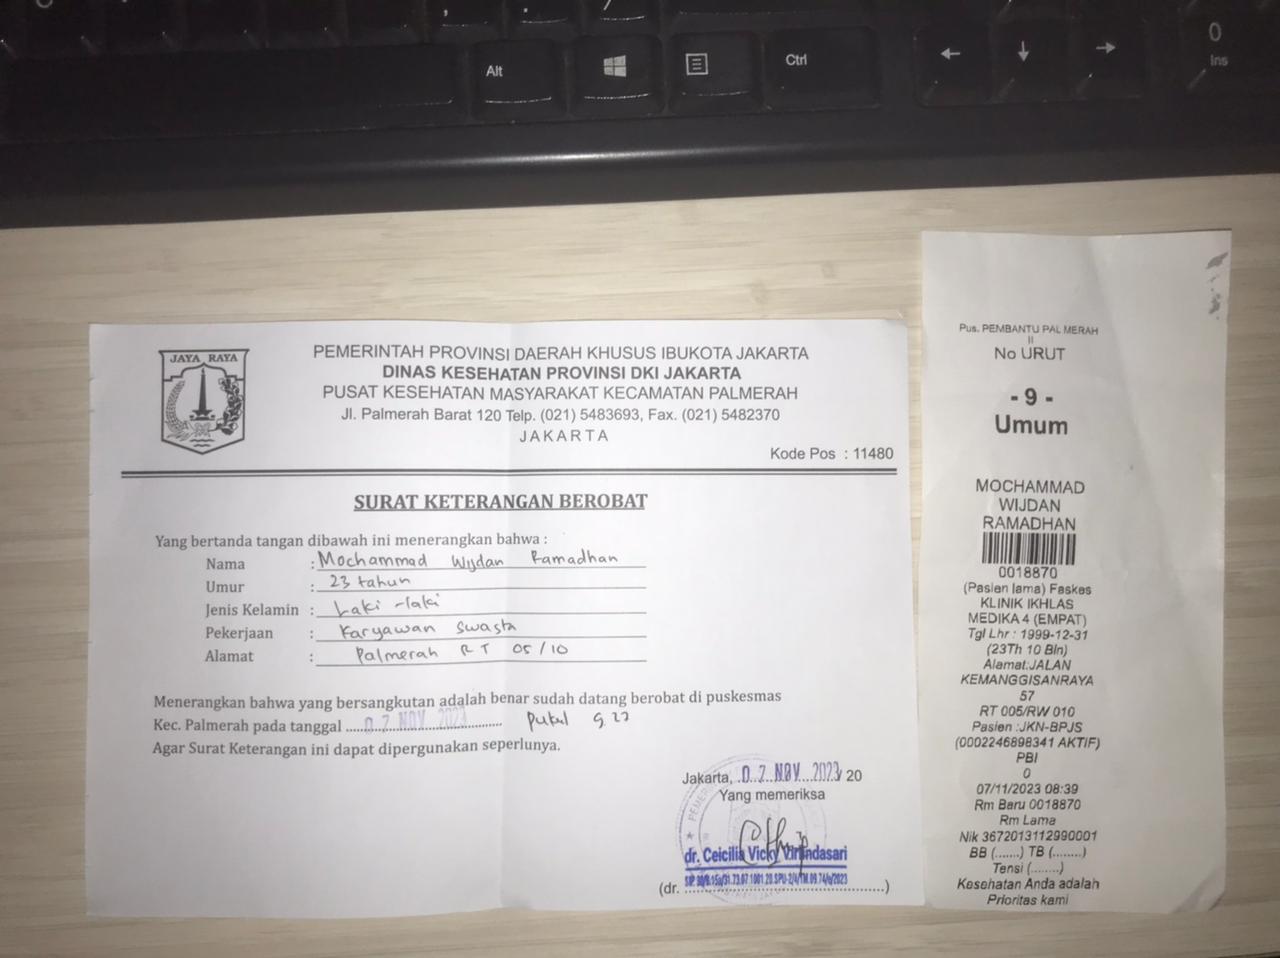 Alt
Ctrl
0
Ins
JAYA RAYA
PEMERINTAH PROVINSI DAERAH KHUSUS IBUKOTA JAKARTA
DINAS KESEHATAN PROVINSI DKI JAKARTA
PUSAT KESEHATAN MASYARAKAT KECAMATAN PALMERAH
Jl. Palmerah Barat 120 Telp. (021) 5483693, Fax. (021) 5482370
JAKARTA
Kode Pos : 11480
SURAT KETERANGAN BEROBAT
Yang bertanda tangan dibawah ini menerangkan bahwa :
Nama : Mochammad Wijdan Ramadhan
Umur : 23 tahun
Jenis Kelamin : Laki-laki
Pekerjaan : Karyawan Swasta
Alamat : Palmerah RT 05/10
Menerangkan bahwa yang bersangkutan adalah benar sudah datang berobat di puskesmas
Kec. Palmerah pada tanggal 07 NOV 2023 Pukul 9.27
Agar Surat Keterangan ini dapat dipergunakan seperlunya.
Jakarta, 07 NOV 2023 20
Yang memeriksa
dr. Ceicilia Vicky
(dr. ......................................)
Pus. PEMBANTU PAL MERAH
II
No URUT
- 9 -
Umum
MOCHAMMAD
WIJDAN
RAMADHAN
0018870
(Pasien lama) Faskes
KLINIK IKHLAS
MEDIKA 4 (EMPAT)
Tgl Lhr : 1999-12-31
(23Th 10 Bln)
Alamat:JALAN
KEMANGGISANRAYA
57
RT 005/RW 010
Pasien :JKN-BPJS
(0002246898341 AKTIF)
PBI
0
07/11/2023 08:39
Rm Baru 0018870
Rm Lama
Nik 3672013112990001
BB (.......) TB (........)
Tensi (........)
Kesehatan Anda adalah
Prioritas kami